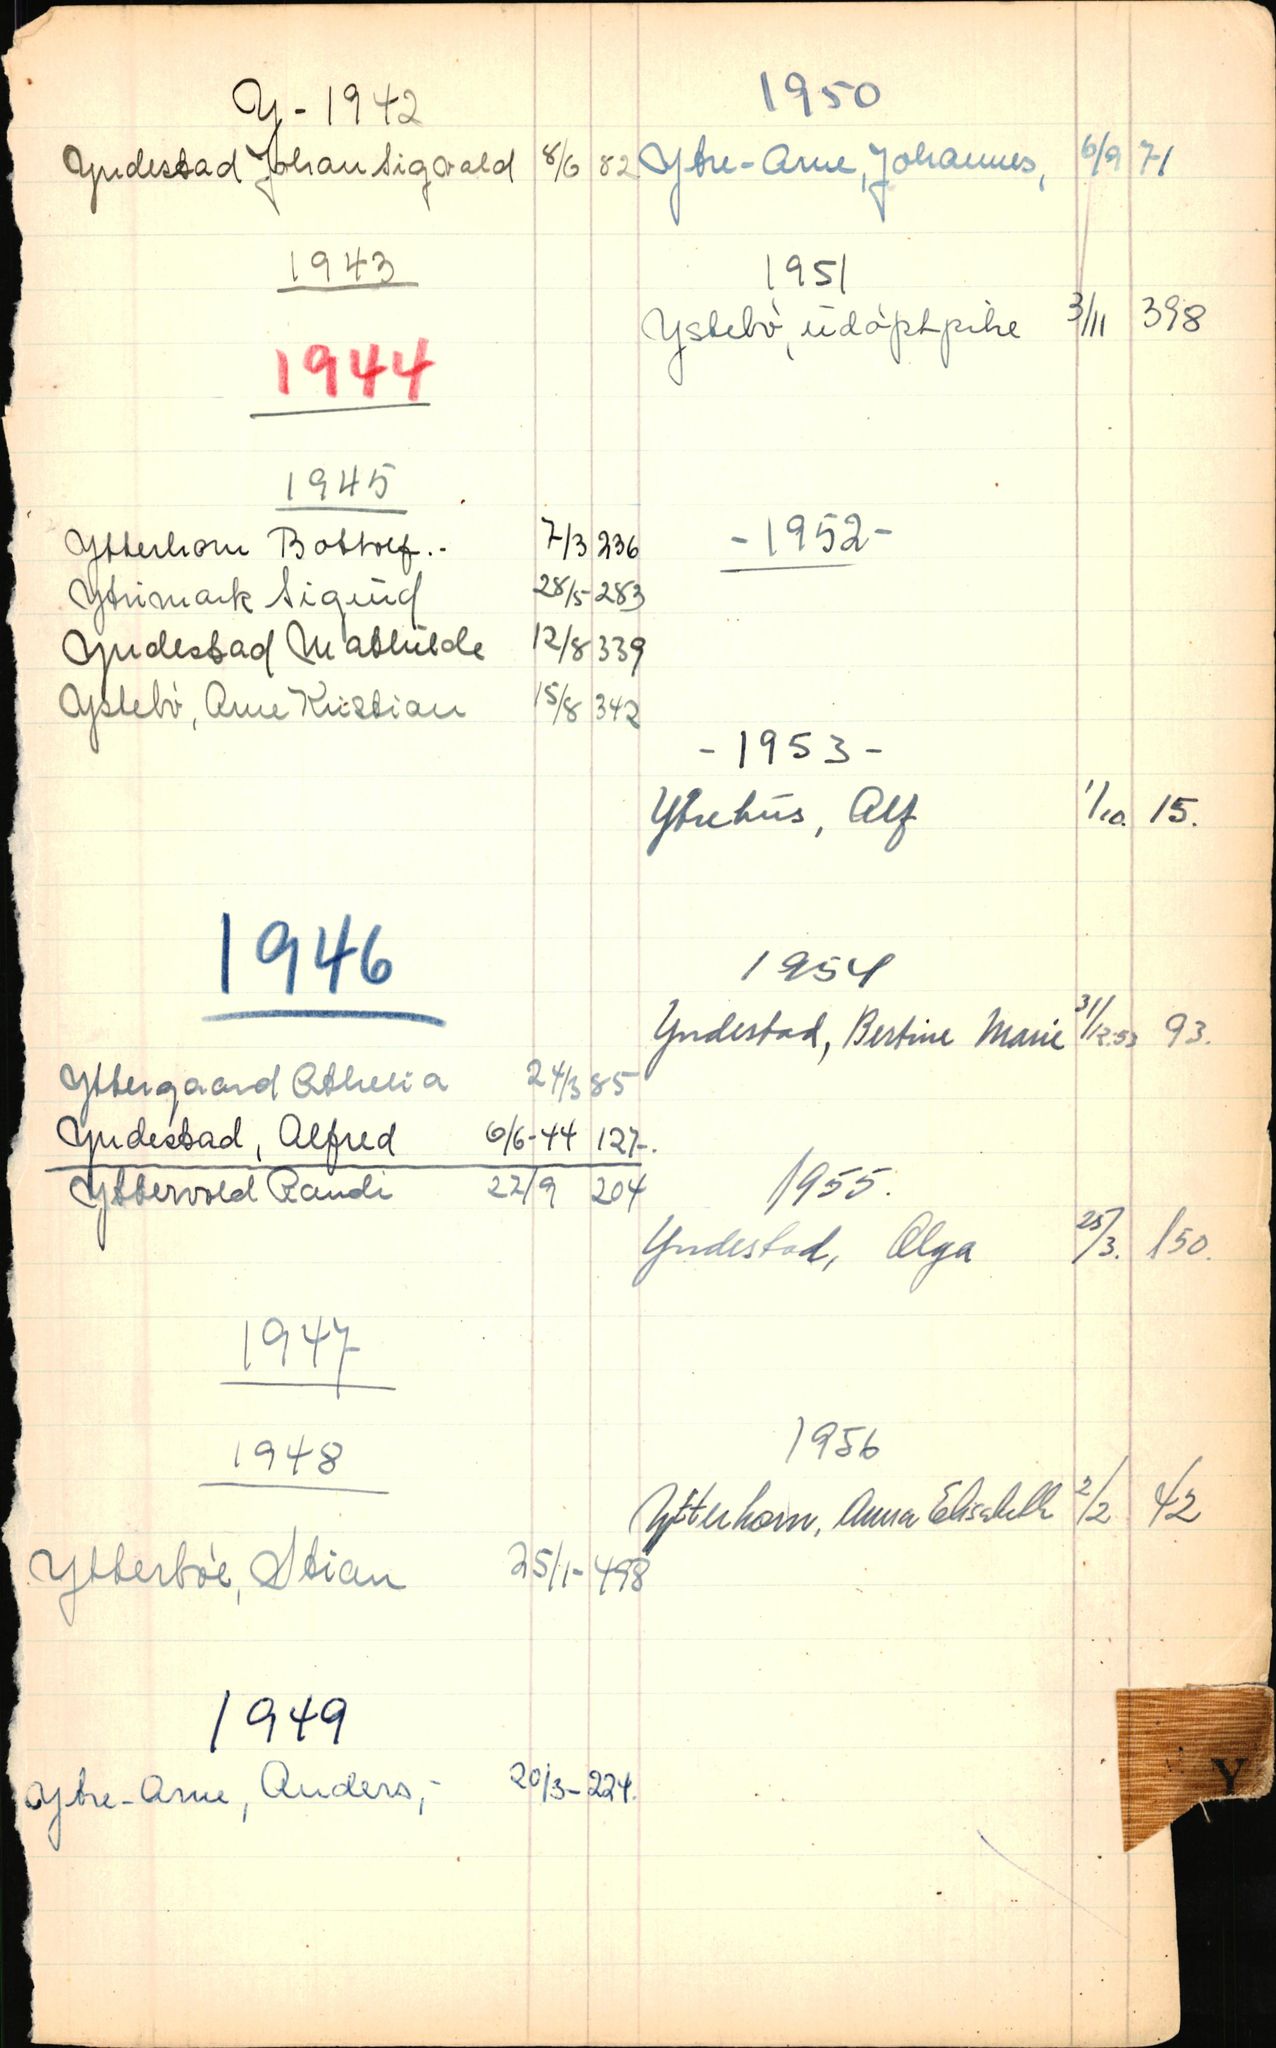 Y - 1942
Yndestad Johan Sigvald 8/6 82
1943
1944
1945
Ytterhorn Bottolf.. 7/3 236
Ytrimark Sigurd 28/5- 283
Yndestad Mathilde 12/8 339
Ystebö, Arne Kristian 15/8 342
1946
Yttergaard Athelia 24/3 85
Yndestad, Alfred 6/6-44 127-.
Yttervold Randi 22/9 204
1947
1948
Ytterböe, Stian 25/1- 498
1949
Ytre-Arne, Anders,- 20/3- 224.
1950
Ytre-Arne, Johannes, 6/9 71
1951
Ystebö, udöpt pike 3/11 398
-1952-
-1953-
Ytrehus, Alf 1/10. 15.
1954
Yndestad, Bertine Marie 31/12.53 93.
1955.
Yndestad, Olga 25/3. 150.
1956
Ytterhorn, Anna Elisabeth 2/2 42
Y